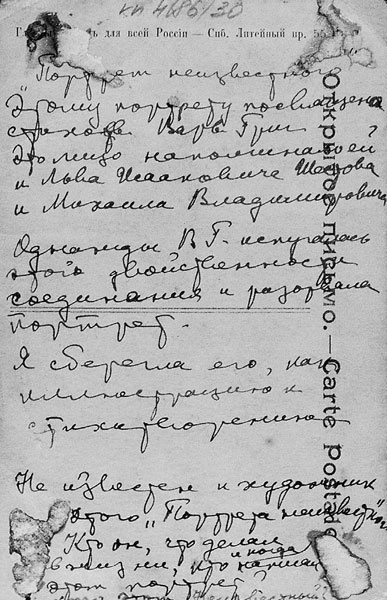 кп 4686/30
для всей Россіи — Спб. Литейный пр. 55
"Портрет неизвестного"
Этому портрету посвящена
стихотв. Варв Григ
Это лицо напоминал ей
и Льва Исааковича Шестова
и Михаила Владимировича
Однажды В Г. испугалась
этого двойственности
соединания и разорвала
портрет.
Я сберегла его, как
иллюстрацию к
стихотворению
Не известен и художник
этого "Портрета неизвестного"
Кто он, что делал
в жизни, кто и когда написал
этот портрет?
Открытое письмо. — Carte Postale